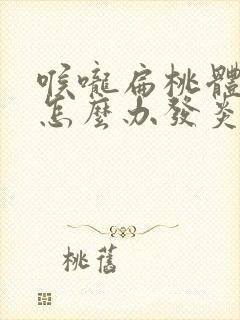 喉嚨扁桃體
怎麼办發炎
桃舊